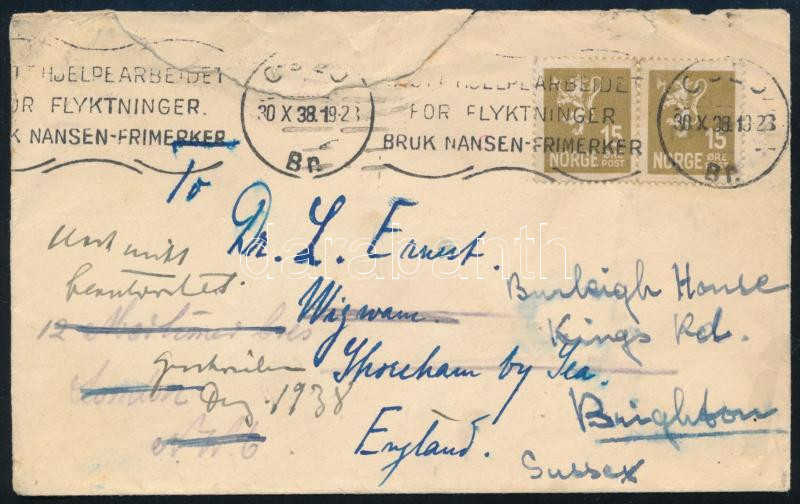 HJELPEARBEIDET
FOR FLYKTNINGER.
BRUK NANSEN-FRIMERKER
OSLO
30 X 38.19-23
Br.
HJELPEARBEIDET
FOR FLYKTNINGER
BRUK NANSEN-FRIMERKER
15
NORGE ØRE
POST
15
NORGE ØRE
OSLO
30 X 38.19-23
Br.
To
Dr. L. Ernest.
Wigwam.
Shoreham by Sea.
England.
Burleigh House
Kings Rd.
Brighton
Sussex
Noch nicht
beantwortet.
12 Mortimer Cres
London
NW6
geschrieben
Dez. 1938
darabanth